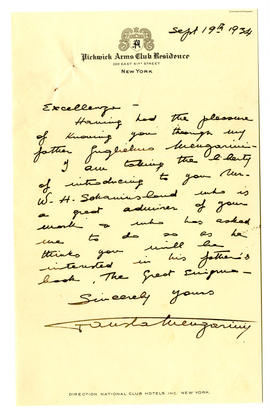 Sept 19th 1934
Pickwick Arms Club Residence
230 EAST 51ST STREET
NEW YORK
Excellenza -
Having had the pleasure
of knowing you through my
father Guglielmo Mengarini -
I am taking the liberty
of introducing to you Mr.
W. H. who is
a great admirer of your
work & who has asked
me to do so as he
thinks you will be
interested in his father's
book, The Great Enigma -
Sincerely Yours
Fausta Mengarini
DIRECTION NATIONAL CLUB HOTELS INC. NEW YORK.